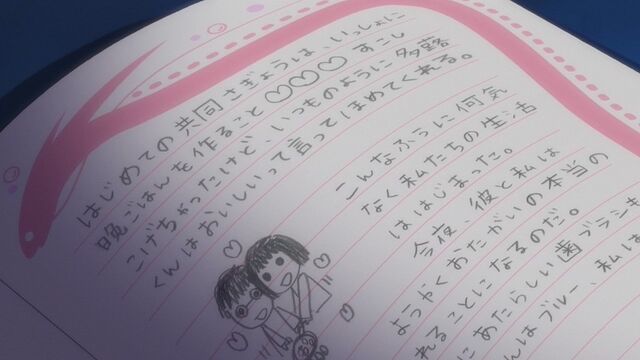 はじめての共同さぎょうは、いっしょに
晩ごはんを作ること♡♡♡ すこし
こげちゃったけど、いつものように多蕗
くんはおいしいって言ってほめてくれる。
こんなふうに何気
なく私たちの生活
ははじまった。
今夜、彼と私は
ようやくおたがいの本当の
れることになるのだ。
にあたらしい歯ブラシも
んはブルー、私は